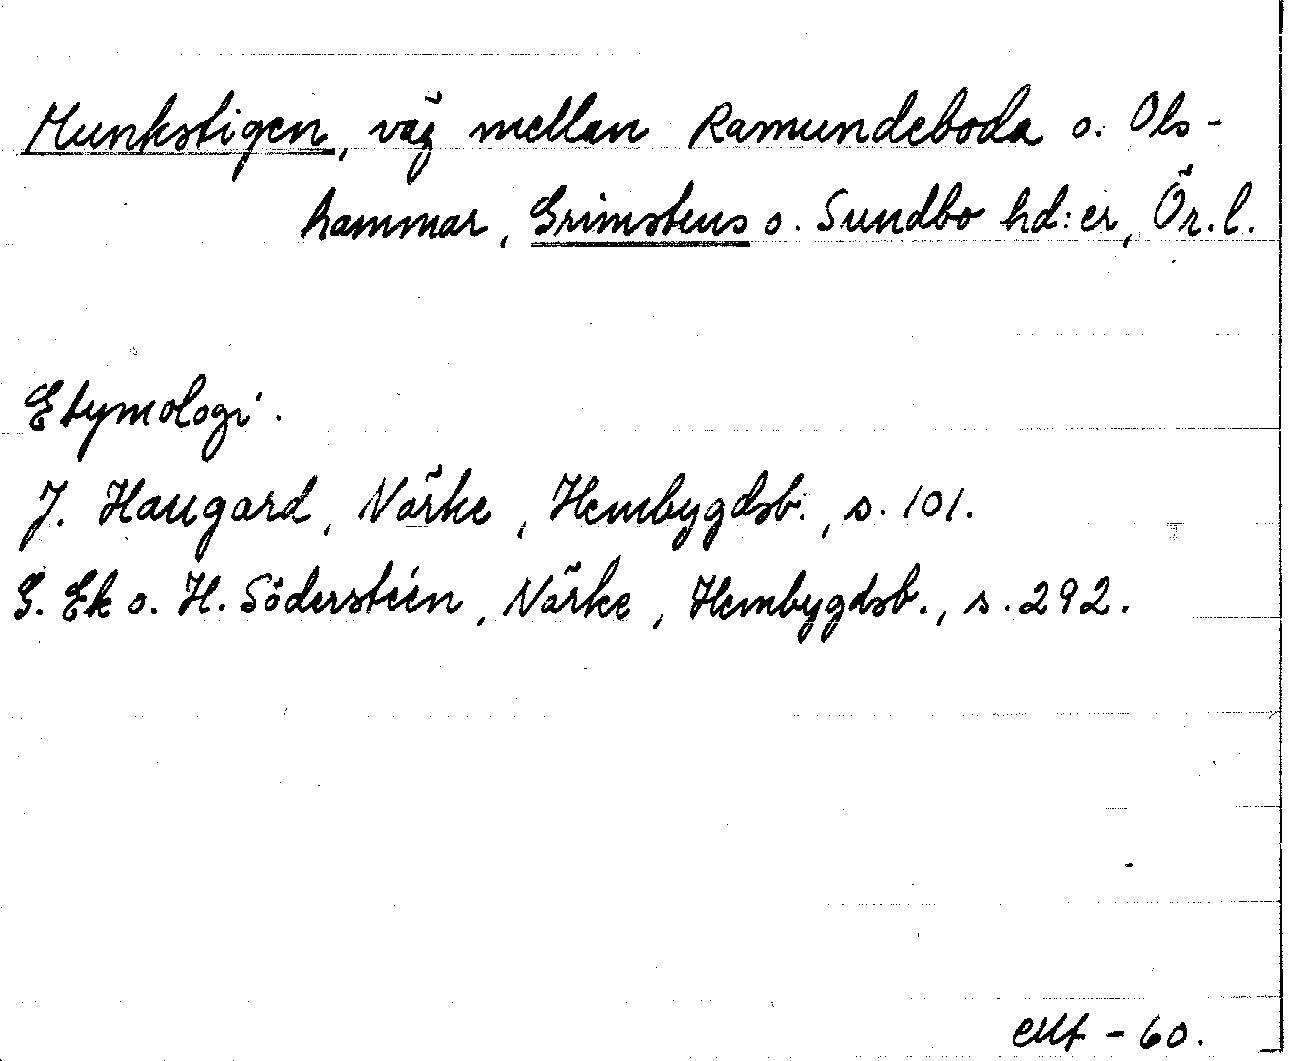 Munkstigen, väg mellan Ramundeboda o. Ols-
hammar, Grimstens o. Sundbo hd:er, Ör. l.
Etymologi.
J. Haugard, Närke, Hembygdsb., s. 101.
G. Ek o. H. Söderstéen, Närke, Hembygdsb., s. 292.
- 60.